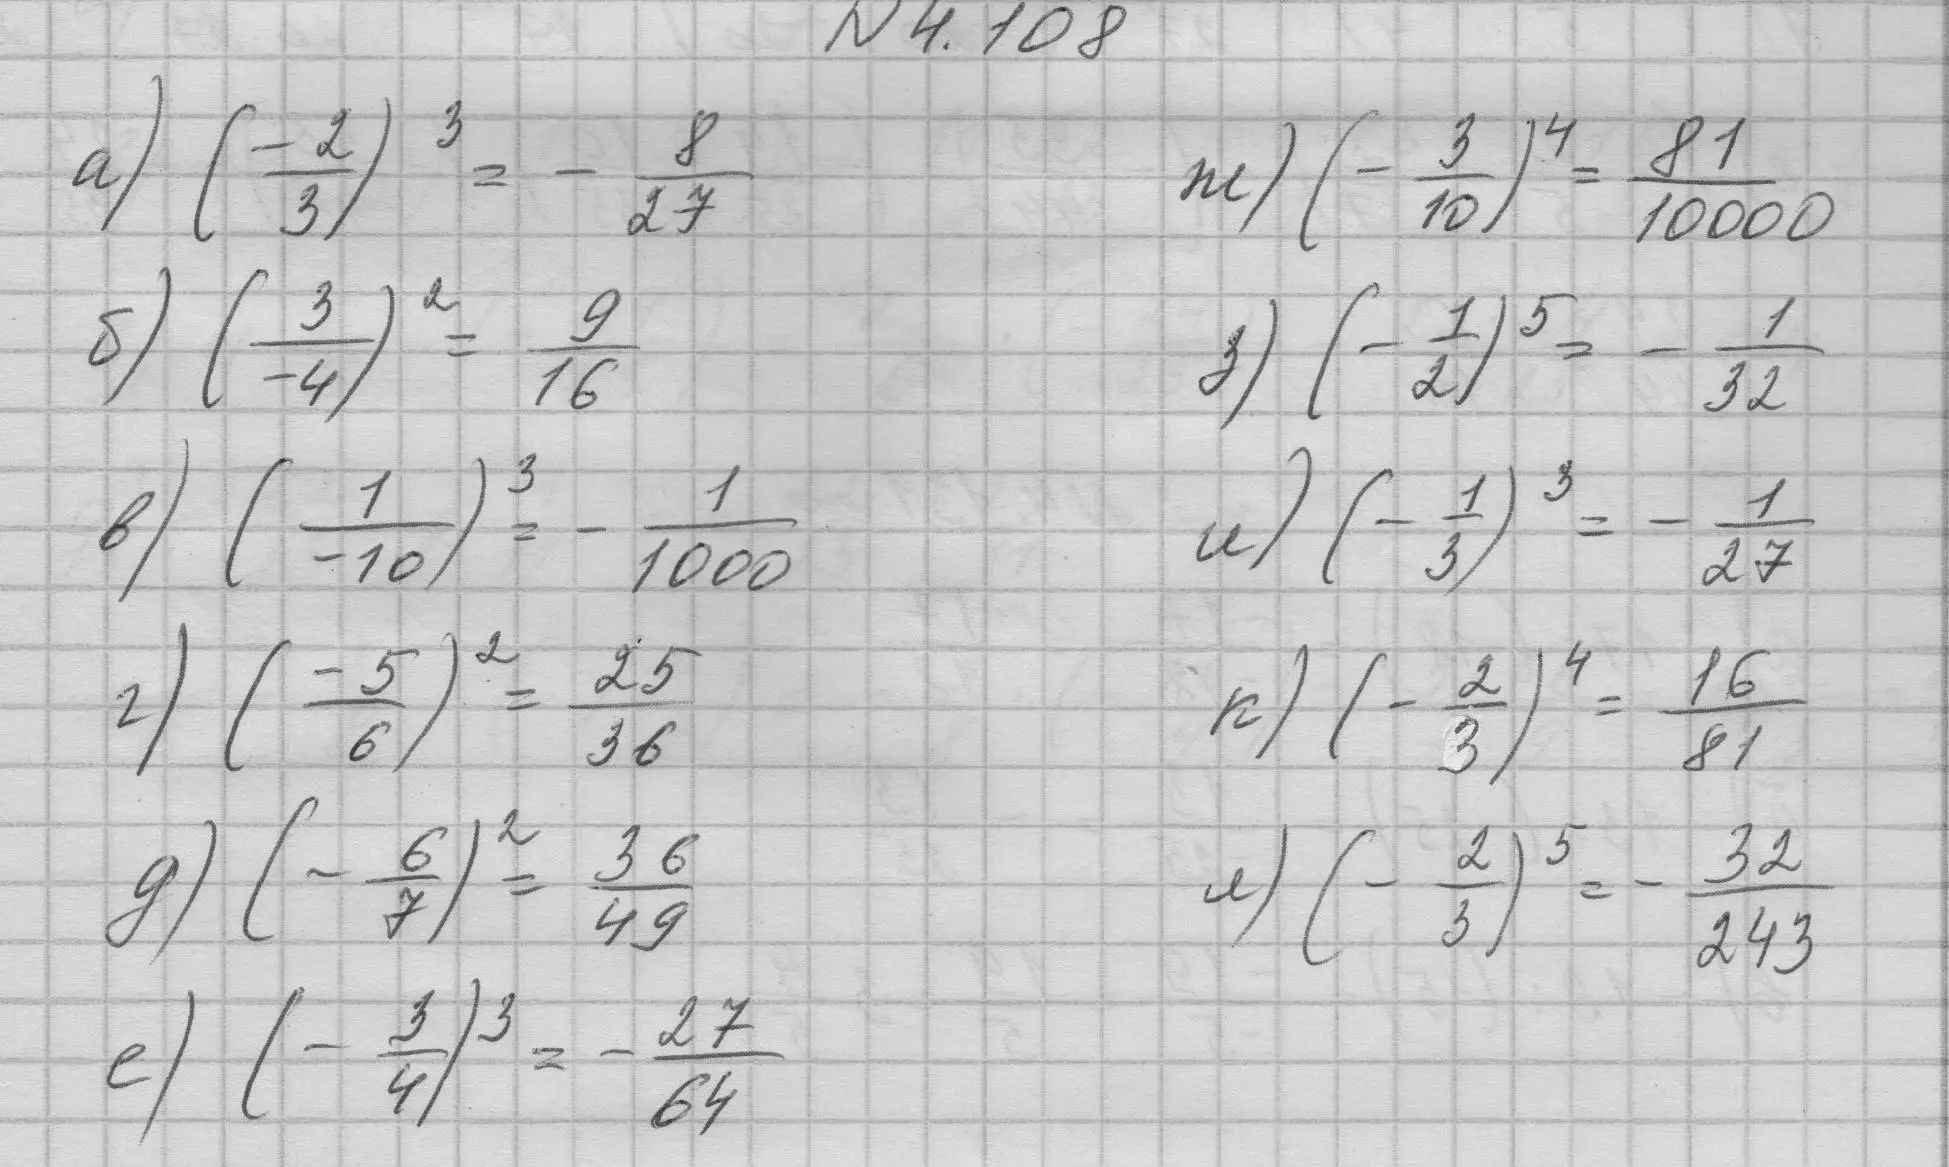 N 4.108
а) (-2/3)^3 = - 8/27
б) (3/-4)^2 = 9/16
в) (1/-10)^3 = - 1/1000
г) (-5/6)^2 = 25/36
д) (- 6/7)^2 = 36/49
е) (- 3/4)^3 = - 27/64
ж) (- 3/10)^4 = 81/10000
з) (- 1/2)^5 = - 1/32
и) (- 1/3)^3 = - 1/27
к) (- 2/3)^4 = 16/81
л) (- 2/3)^5 = - 32/243